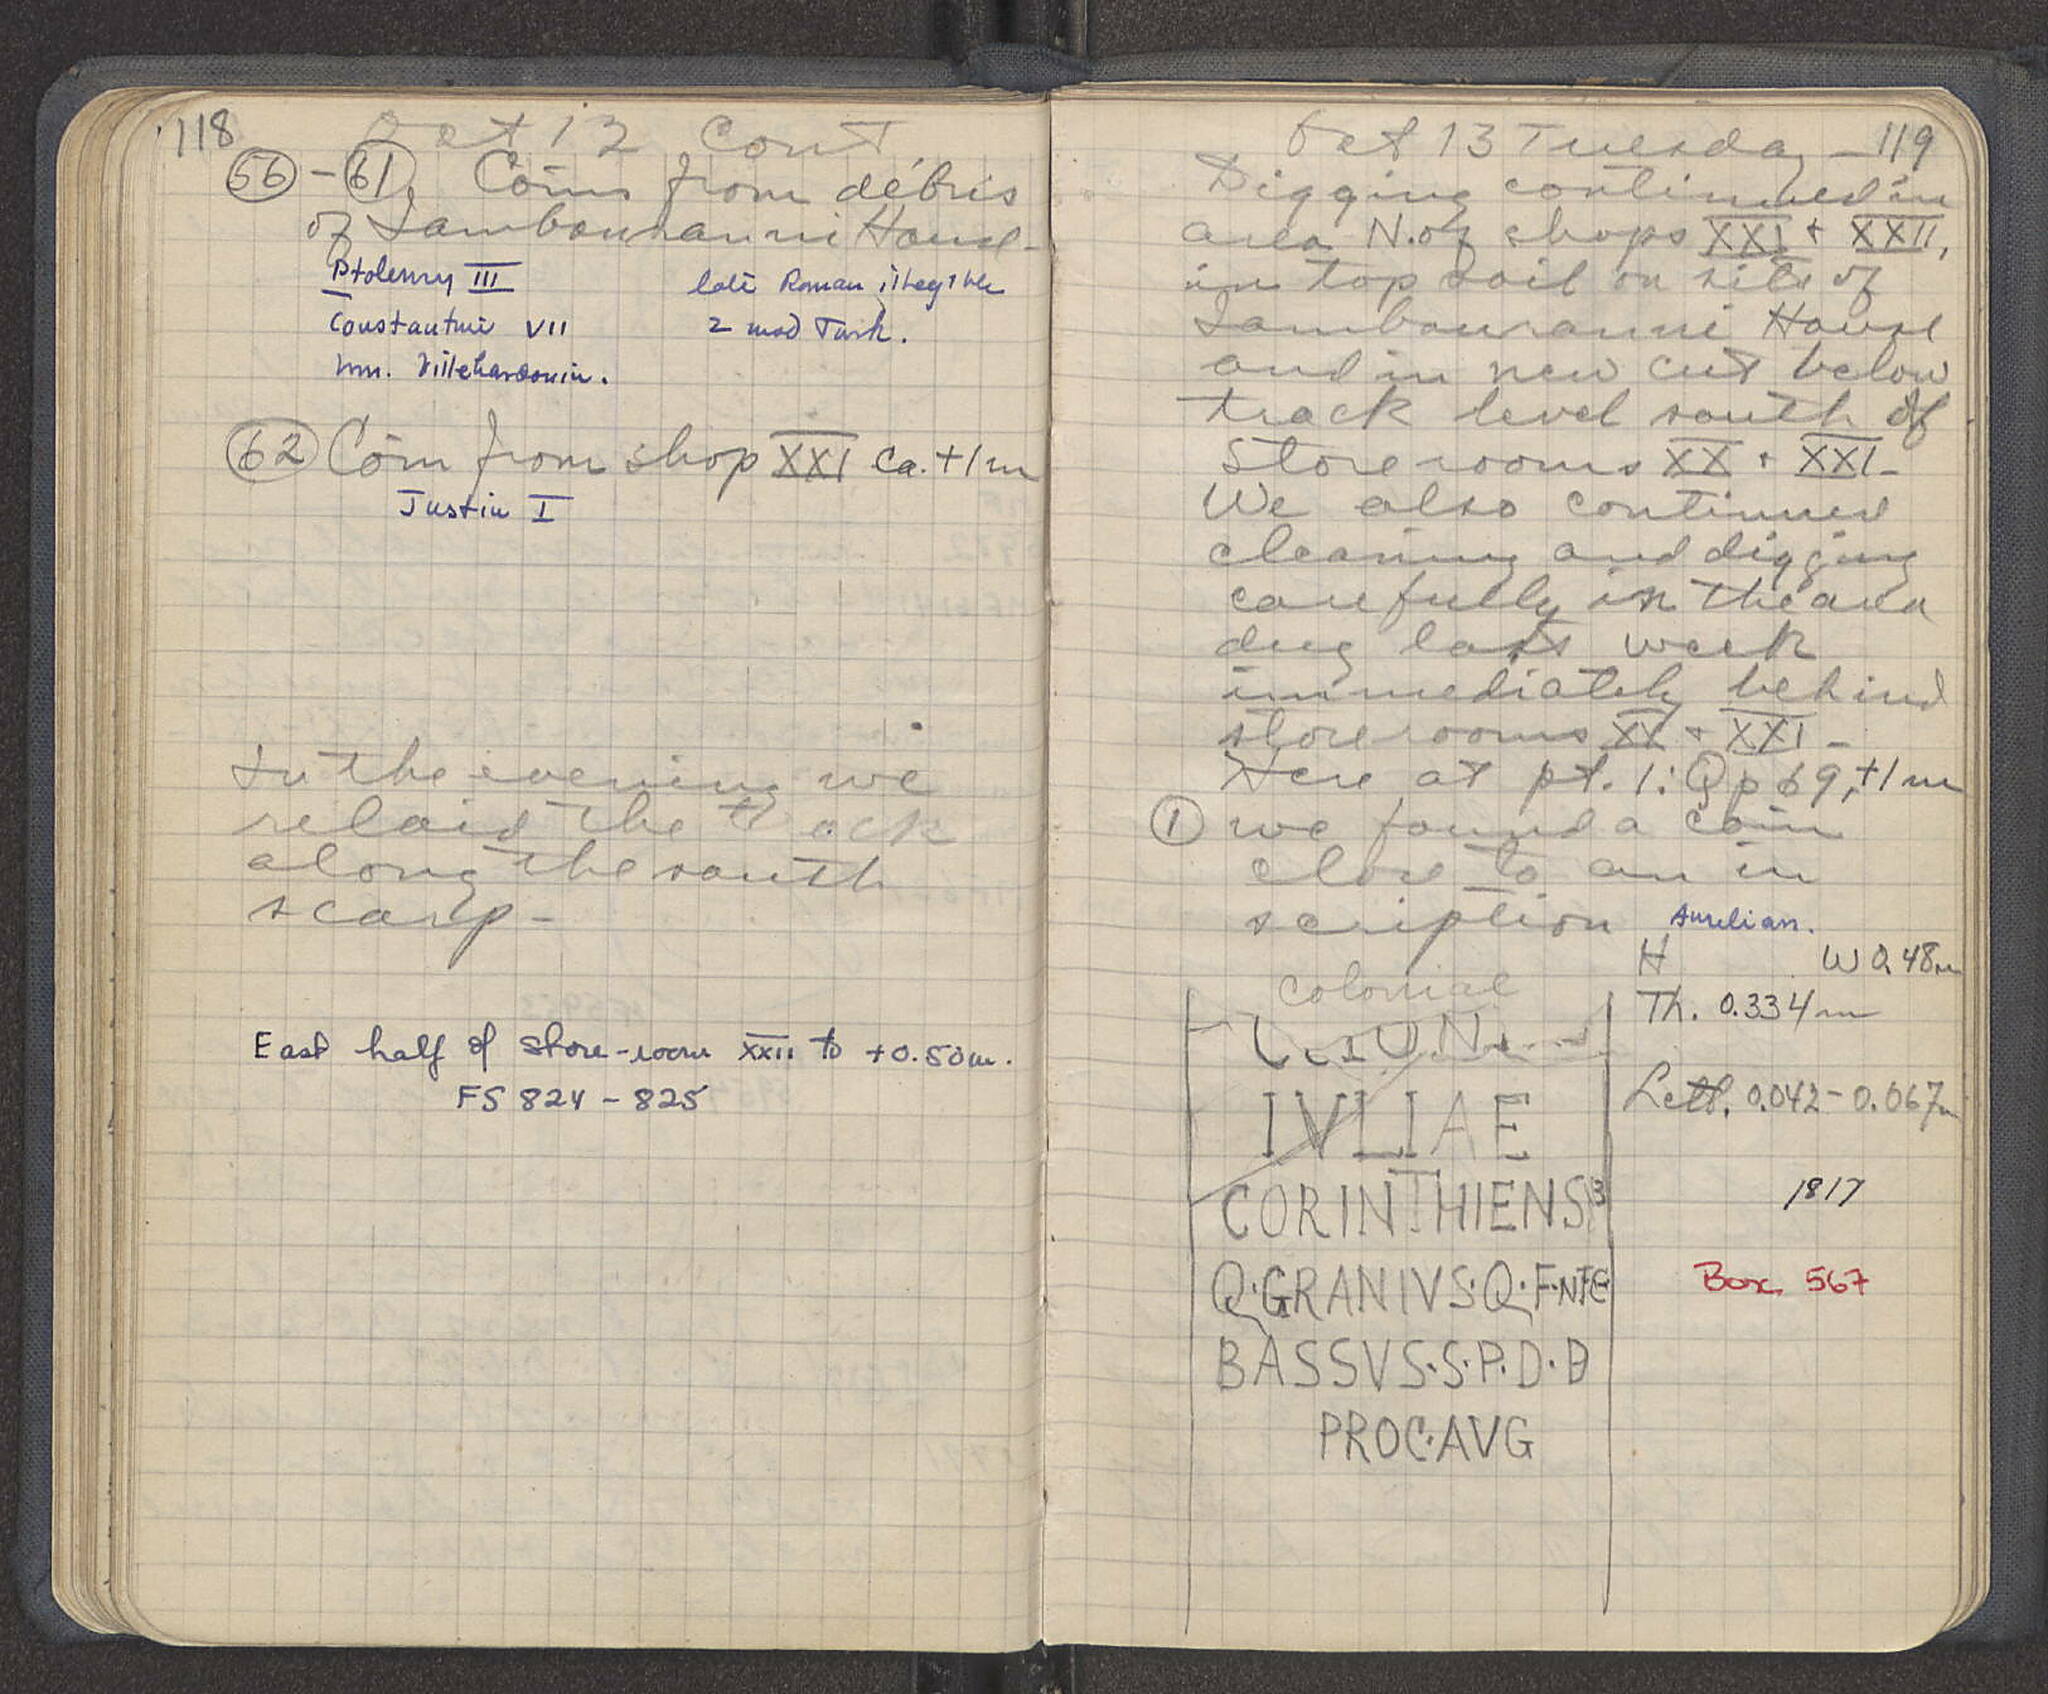 118
Oct 12 Cont
56 - 61. Coins from débris
of Lambouranni House -
Ptolemy III late Roman illegible
Constantine VII 2 mod Turk.
Wm. Villehardouin.
62 Coin from shop XXI ca. +1m
Justin I
In the evening we
relaid the track
along the south
scarp -
East half of store-room XXII to +0.50m.
FS 824 - 825
Oct 13 Tuesday - 119
Digging continued in
area N. of shops XXI + XXII,
in top soil on site of
Lambouranni House
and in new cut below
track level south of
Store rooms XX + XXI -
We also continued
cleaning and digging
carefully in the area
dug last week
immediately behind
store rooms XX + XXI -
Here at pt. 1: Q p 69, +1m
1 we found a coin
close to an in
scription Aurelian.
H W 0.48m
colonial
Th. 0.334m
IVLIAE
Lett. 0.042 - 0.067m
CORINTHIENS
1817
Q·GRANIVS·Q·F·
Box 567
BASSVS·S·P·D·D
PROC·AVG